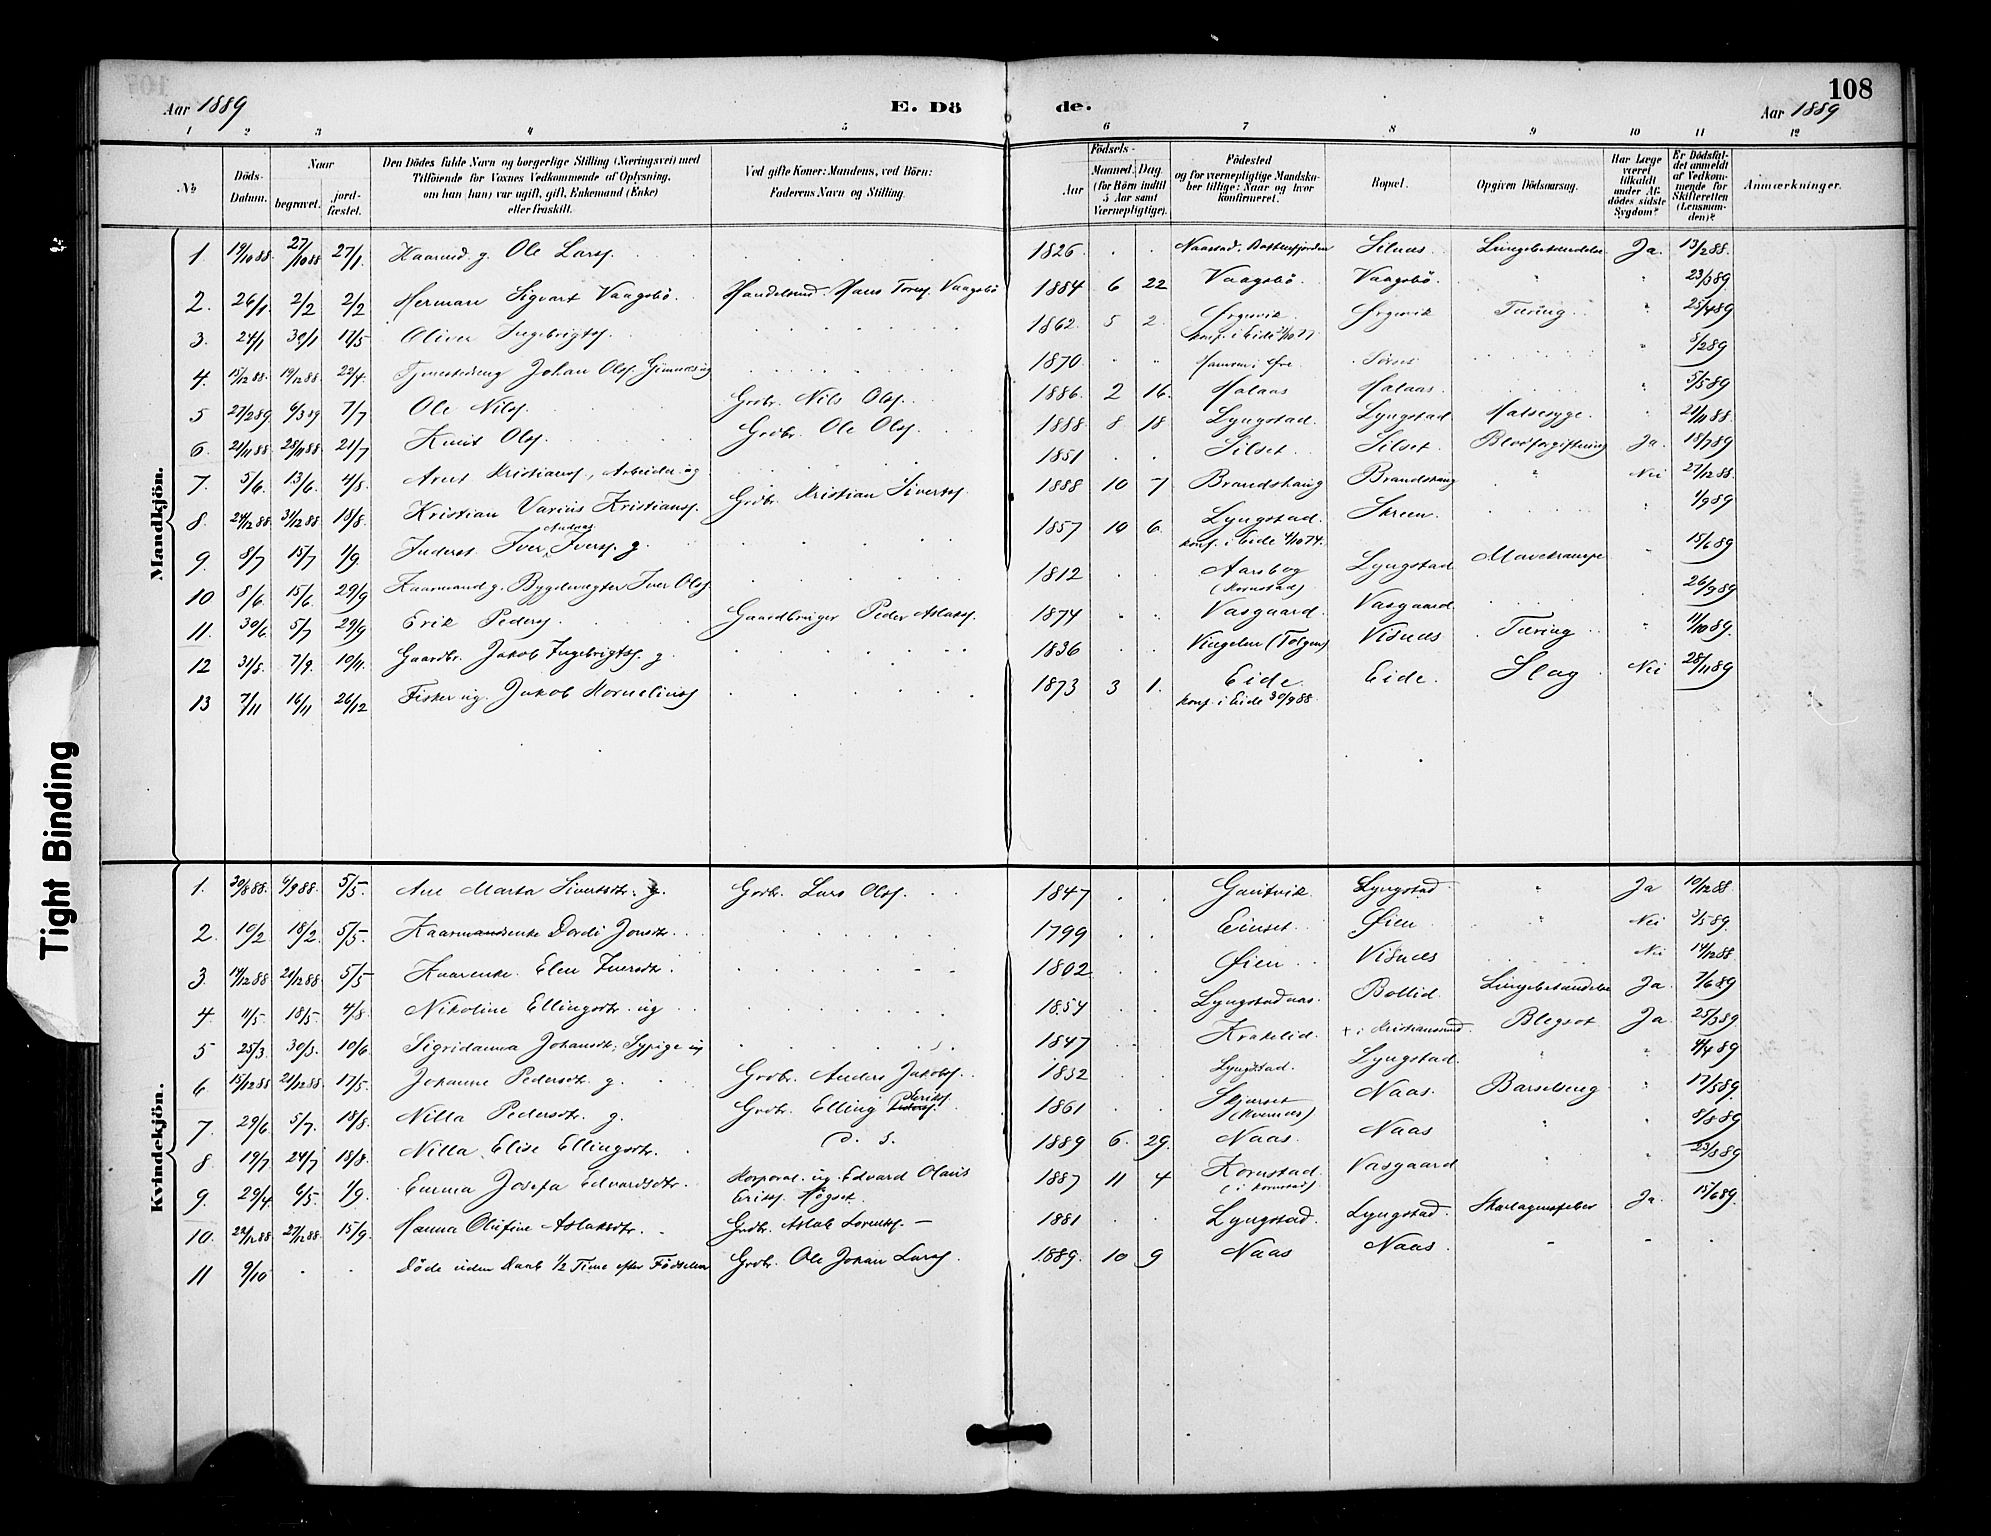 108
Aar 1889 E. Dö de. Aar 1889
1 2 3 4 5 6 7 8 9 10 11 12
№ Döds-Datum. Naar begravet. jordfæstet. Den Dödes fulde Navn og borgerlige Stilling (Næringsvei) med Tilföiende for Voxnes Vedkommende af Oplysning, om han (hun) var ugift, gift, Enkemand (Enke) eller fraskilt. Ved gifte Koner: Mandens, ved Börn: Faderens Navn og Stilling. Födsels- Aar Maaned. Dag (for Börn indtil 5 Aar samt Værnepligtige). Födested og for værnepligtige Mandskaber tillige: Naar og hvor konfirmeret. Bopæl. Opgiven Dödsaarsag. Har Læge været tilkaldt under Afdödes sidste Sygdom? Er Dödsfaldet anmeldt af Vedkommende for Skifteretten (Lensmanden)? Anmærkninger.
Mandkjön.
1 19/10 88 27/10 88 27/1 Kaarmd g. Ole Larss. 1826 Naastad. Battenfjorden Silnæs Lungebetændelse Ja 13/2 88.
2. 26/1 2/2 2/2 Herman Sigvart Vaagsbö. Handelsmd. Hans Toress. Vaagsbö 1884 6 22 Vaagsbö. Vaagsbö. " " 23/3 89
3. 24/1 30/1 17/5 Oliver Ingebrigts. 1862. 5 2. Ørgevik konf. i Eide 7/10 77 Ørgevik Tæring " 25/4 89
4. 15/12 88 19/12 88 22/4. Tjenestedreng Johan Olss. Gimnæs ug 1870 Hamren i Øre. " 8/2 89
5 27/2 89 6/3 89 7/7 Ole Nilss. Grdbr. Nils Olss. 1886 2 16. Halaas Halaas. " 5/5 89
6. 21/11 88 28/11 88 21/7 Knut Olss. Grdbr. Ole Olss. 1888 8 18 Lyngstad. Lyngstad Halsesyge. " 21/11 88
7. 5/6. 13/6. 4/8. Arnt Kristianss., Arbeider ug 1851 Silset. Silset Blodforgiftning Ja. 18/7 89
8 24/12 88 31/12 88 18/8. Kristian Varius Kristianss. Grdbr. Kristian Sivertss. 1888 10 7 Brandshaug Brandshaug " Nei 27/12 88
9. 8/7 15/7 1/9. Inderst. Iver Andreas Iverss. g. 1857 10 6. Lyngstad. konf. i Eide 4/10 74. Skreen. 1/9 89
10 8/6. 15/6. 29/9 Kaarmand g. Bygdevægter Iver Olss. 1812 Aarsbog (Kornstad) Lyngstad Mavekrampe " 15/6 89
11. 30/6 5/7 29/9 Erik Peders. Gaardbruger Peder Aslakss. 1874 Vasgaard. Vasgaard. 26/9 89
12 31/8. 7/9. 10/11. Gaardbr. Jakob Ingebrigts. g. 1836 Vingelen (Tolgen) Visnæs Tæring " 11/10 89.
13 7/11 16/11 26/12 Fisker ug. Jakob Korneliuss 1873 3 1. Eide. konf. i Eide 30/9 88. Eide. Slag Nei 28/11 89
Kvindekjön.
1. 30/8 88. 6/9 88. 5/5. Ane Marta Sivertsdtr. g. Grdbr. Lars Olss. 1847 Gautvik Lyngstad. " Ja 10/12 88.
2. 10/2 18/2. 5/5. Kaarmandsenke Dordi Jonsdtr. 1799 Einset. Øien " Nei 3/5 89.
3. 14/12 88 21/12 88 5/5 Kaarenke. Elen Iversdtr. 1802 Øien Visnæs Nei 14/12 88.
4. 11/5 18/5. 4/8 Nikoline Ellingsdtr. ug 1854 Lyngstadaas. Bollid Lungebetændelse Ja. 7/6 89
5 25/3. 30/3. 10/6 Sigridanna Johansdtr. Sypige ug 1847 Krakelid + i Kristiansund. Blegsot Ja 25/3 89
6 15/12 88 21/12 88 17/5. Johanne Pedersdtr. g. Grdbr. Anders Jakobs. 1832 Lyngstad. Lyngstad. " " 4/4 89
7. 29/6 5/7. 18/8. Nilla Pedersdtr. g. Grdbr. Elling Eriks. 1861 Skjærset (Kvernæs) Naas. Barselseng " 17/5 89.
8 19/7 24/7 18/8. Nilla Elise Ellingsdtr. d. s. 1889 6. 29. Naas. Naas " " 8/8 89
9. 29/4 6/5. 1/9. Emma Josefa Edvardsdtr. Korporal. ug. Edvard Olaus Erikss. Høgset. 1887 11 4 Kornstad. (i Kornstad) Vasgaard " " 23/5 89
10. 22/12 88 27/12 88 15/9. Hanna Olufine Aslaksdtr. Grdbr. Aslak Lorentss. 1881 Lyngstad. Lyngstad. Skarlagensfeber Ja. 15/6 89.
11 9/10 Döde uden Daab 1/2 Time efter Födselen Grdbr. Ole Johan Larss. 1889. 10 9 Naas Naas.
Tight Binding